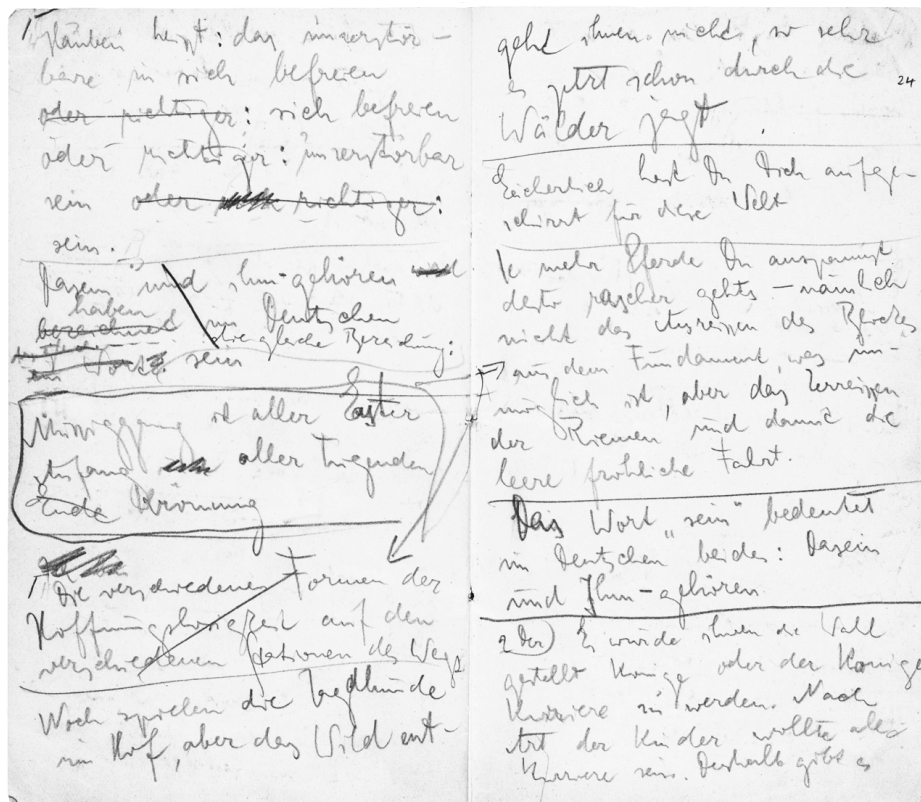 Glauben heisst: das unzerstör-
bare in sich befreien
oder richtiger: sich befreien
oder richtiger: unzerstörbar
sein oder richtiger:
sein.
Dasein und Ihm-gehören
haben
bezeichnet im Deutschen
die gleiche Bezeichnung:
Worte sein
Müssiggang ist aller Laster
Anfang aller Tugenden
Ende Krönung
Die verschiedenen Formen der
Hoffnungslosigkeit auf den
verschiedenen Stationen des Wegs
Noch spielen die Jagdhunde
im Hof, aber das Wild ent-
geht ihnen nicht, so sehr
es jetzt schon durch die
24
Wälder jagt.
Lächerlich hast Du Dich aufge-
schirrt für diese Welt
Je mehr Pferde Du anspannst
desto rascher gehts – nämlich
nicht das Ausreissen des Blockes
aus dem Fundament, was un-
möglich ist, aber das Zerreissen
der Riemen und damit die
leere fröhliche Fahrt.
Das Wort „sein" bedeutet
im Deutschen beides: Dasein
und Ihm-gehören
Es wurde ihnen die Wahl
gestellt Könige oder der Könige
Kuriere zu werden. Nach
Art der Kinder wollten alle
Kuriere sein. Deshalb gibt es